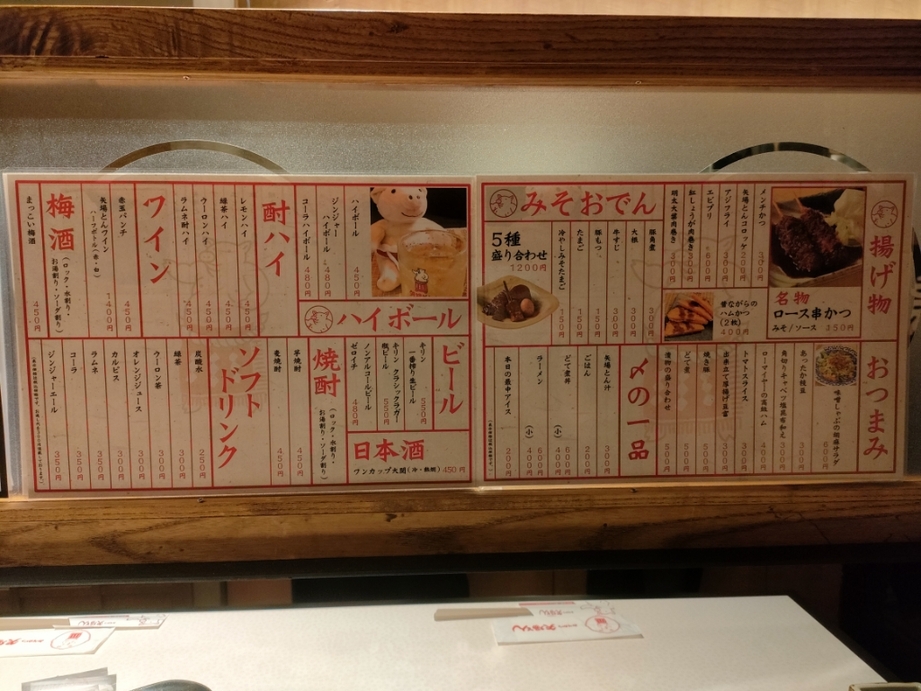 揚げ物
名物
ロース串かつ
みそ/ソース 350円
メンチかつ
矢場とんコロッケ 200円
アジフライ
エビフライ
紅しょうが肉巻き 300円
明太大葉肉巻き 300円
昔ながらの
ハムかつ
(2枚)
400円
みそおでん
豚角煮 300円
大根
牛すじ
豚もつ 150円
たまご
冷やしみそたまご 150円
5種
盛り合わせ
1200円
おつまみ
あったか枝豆 300円
角切りキャベツ塩昆布和え
ローマイヤーの高級ハム
トマトスライス
出来立て厚揚げ豆腐
焼き豚 500円
どて煮
漬物の盛り合わせ
〆の一品
矢場とん汁 300円
ごはん 200円
どて煮丼 600円
(小) 400円
ラーメン 600円
(小) 400円
本日の最中アイス
ハイボール
ハイボール 450円
ジンジャーハイボール 480円
コーラハイボール 480円
酎ハイ
レモンハイ 450円
緑茶ハイ 450円
ウーロンハイ 450円
ラムネ酎ハイ 450円
ワイン
赤玉パンチ 400円
矢場とんワイン
ハーフボトル(赤・白) 1400円
梅酒
(ロック・水割り・
お湯割り・ソーダ割り)
まっこい梅酒 450円
ビール
キリン
一番搾り生ビール 550円
キリン クラシックラガー
瓶ビール 550円
ノンアルコールビール
ゼロイチ 480円
日本酒
ワンカップ大関(冷・熱燗) 450円
焼酎
(ロック・水割り・
お湯割り・ソーダ割り)
芋焼酎 450円
麦焼酎 450円
ソフトドリンク
炭酸水 250円
緑茶 200円
ウーロン茶 300円
オレンジジュース 300円
カルピス 300円
ラムネ
コーラ 350円
ジンジャーエール 350円